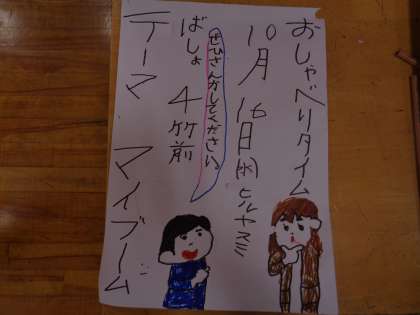 おしゃべりタイム
10月16日(水)ヒルヤスミ
ぜひさんかしてください。
ばしょ 4竹前
テーマ マイブーム